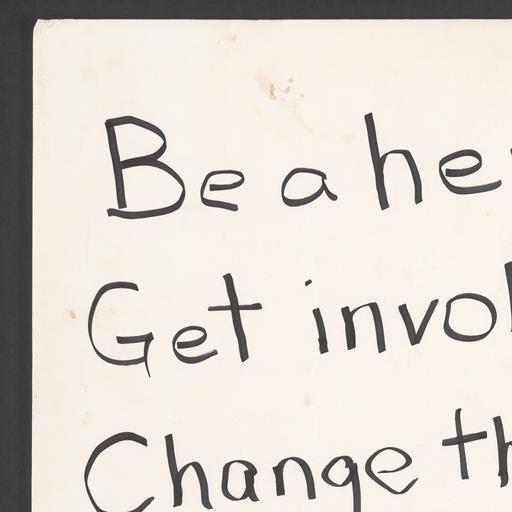 Be a he
Get invol
Change th